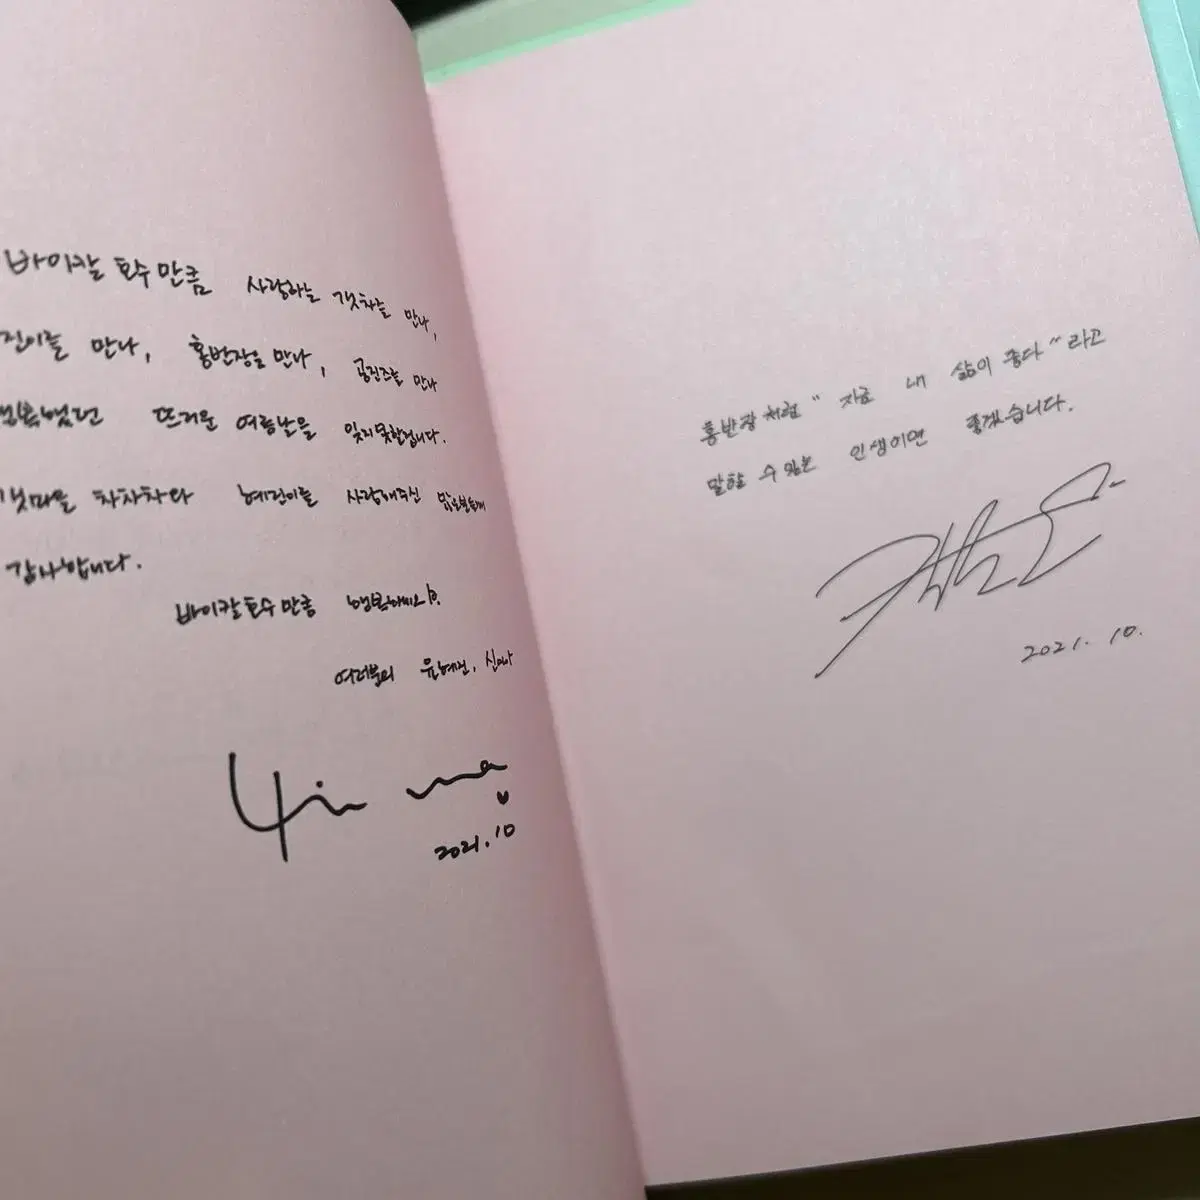 바이칼 호수만큼 사랑하는 갯차를 만나,
진이를 만나, 홍반장을 만나, 공진즈를 만나
행복했던 뜨거운 여름날을 잊지못할겁니다.
갯마을 차차차와 혜진이를 사랑해주신 많은분들께
감사합니다.
바이칼호수만큼 행복하세요.
여러분의 윤혜진, 신민아
2021. 10
홍반장처럼 "지금 내 삶이 좋다" 라고
말할 수 있는 인생이면 좋겠습니다.
2021. 10.